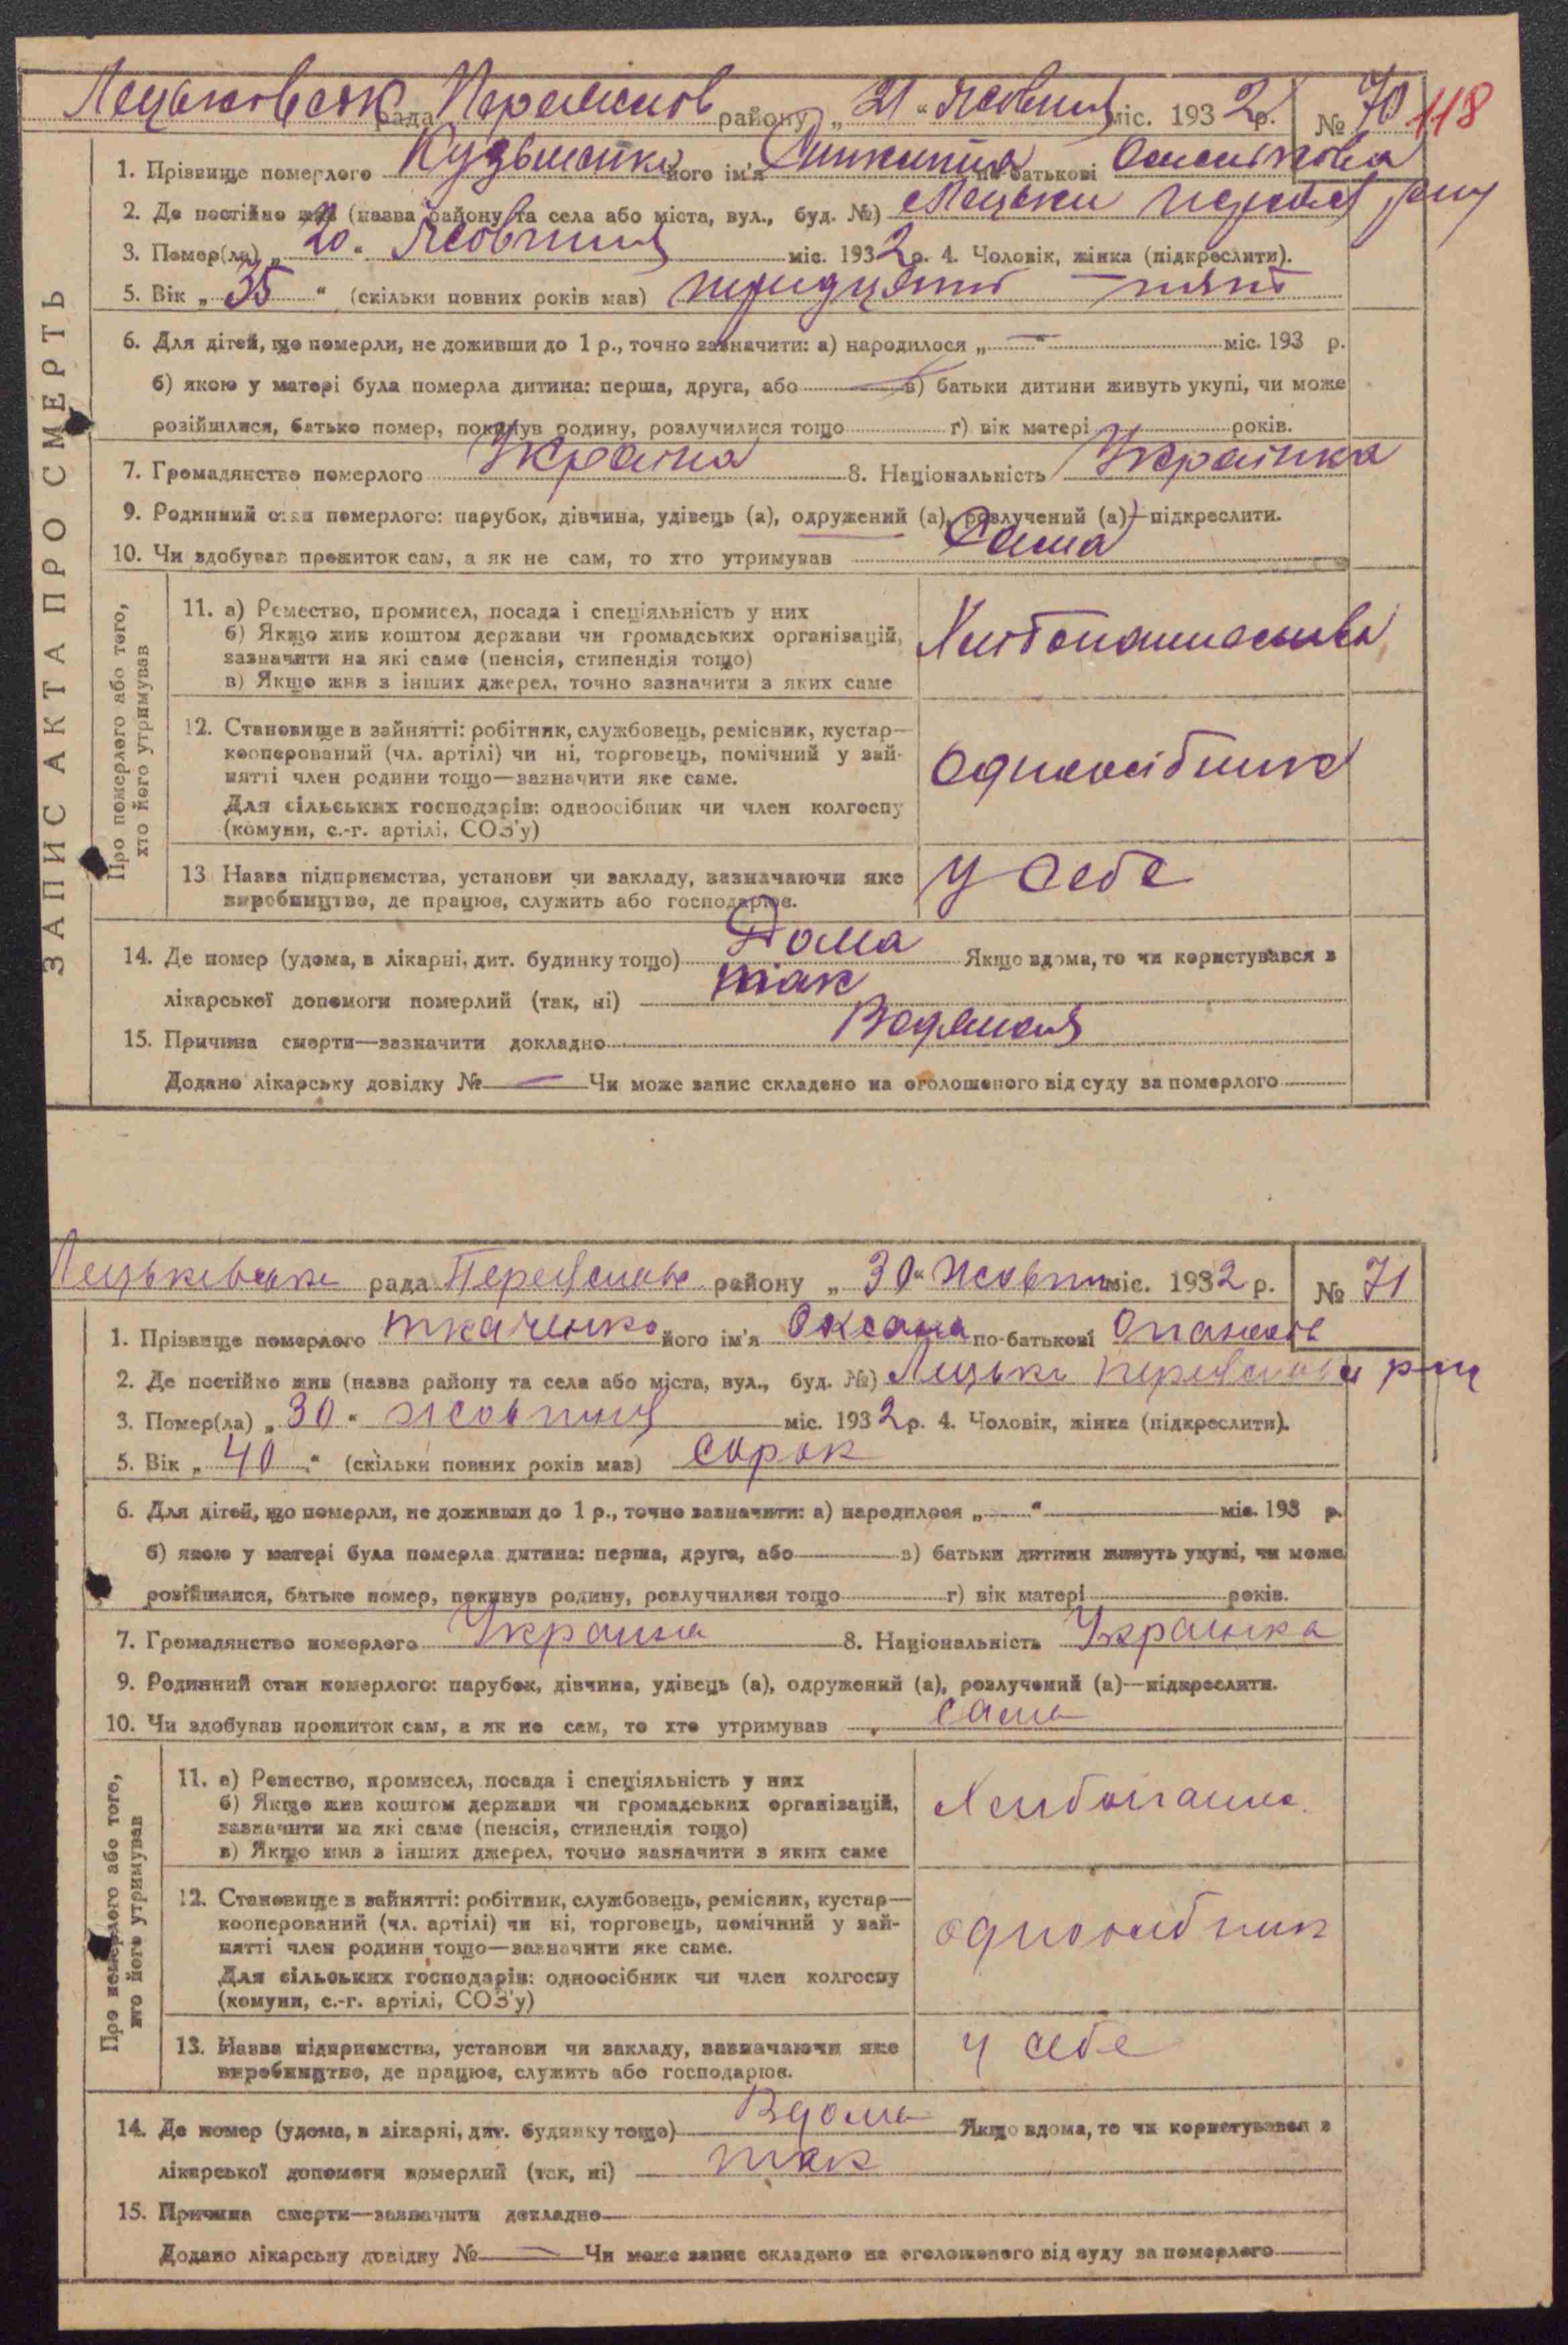 рада Переяслов району „ 21 “ Жовтня міс. 1932 р. № 70 118
1. Прізвище померлого його ім'я по-батькові
2. Де постійно жив (назва району та села або міста, вул., буд. №)
3. Помер(ла) „ 20 “ Жовтня міс. 1932 р. 4. Чоловік, жінка (підкреслити).
5. Вік „ 35 “ (скільки повних років мав) тридцять — пять
6. Для дітей, що померли, не доживши до 1 р., точно зазначити: а) народилося „ — “ міс. 193 р.
б) якою у матері була померла дитина: перша, друга, або в) батьки дитини живуть укупі, чи може
розійшлися, батько помер, покинув родину, розлучилися тощо г) вік матері років.
7. Громадянство померлого Україна 8. Національність Українка
9. Родинний стан померлого: парубок, дівчина, удівець (а), одружений (а), розлучений (а)—підкреслити.
10. Чи здобував прожиток сам, а як не сам, то хто утримував Сама
ЗАПИС АКТА ПРО СМЕРТЬ
Про померлого або того, хто його утримував
11. а) Ремество, промисел, посада і спеціяльність у них
б) Якщо жив коштом держави чи громадських організацій,
зазначити на які саме (пенсія, стипендія тощо)
в) Якщо жив з інших джерел, точно зазначити з яких саме
12. Становище в зайнятті: робітник, службовець, ремісник, кустар—
кооперований (чл. артілі) чи ні, торговець, помічний у зай-
нятті член родини тощо—зазначити яке саме.
Для сільських господарів: одноосібник чи член колгоспу
(комуни, с.-г. артілі, СОЗ'у)
одноосібник
13 Назва підприємства, установи чи закладу, зазначаючи яке
виробництво, де працює, служить або господарює.
у себе
14. Де помер (удома, в лікарні, дит. будинку тощо) Дома Якщо вдома, то чи користувався з
лікарської допомоги померлий (так, ні) так
15. Причина смерти—зазначити докладно
Додано лікарську довідку № — Чи може запис складено на оголошеного від суду за померлого
рада Переяслов району „ 30 “ Жовтня міс. 1932 р. № 71
1. Прізвище померлого Ткаченко його ім'я Оксана по-батькові Опанасов
2. Де постійно жив (назва району та села або міста, вул., буд. №)
3. Помер(ла) „ 30 “ жовтня міс. 1932 р. 4. Чоловік, жінка (підкреслити).
5. Вік „ 40 “ (скільки повних років мав) сорок
6. Для дітей, що померли, не доживши до 1 р., точно зазначити: а) народилося „ “ міс. 193 р.
б) якою у матері була померла дитина: перша, друга, або в) батьки дитини живуть укупі, чи може
розійшлися, батько помер, покинув родину, розлучилися тощо г) вік матері років.
7. Громадянство померлого Україна 8. Національність Українка
9. Родинний стан померлого: парубок, дівчина, удівець (а), одружений (а), розлучений (а)—підкреслити.
10. Чи здобував прожиток сам, а як не сам, то хто утримував сама
Про померлого або того, хто його утримував
11. а) Ремество, промисел, посада і спеціяльність у них
б) Якщо жив коштом держави чи громадських організацій,
зазначити на які саме (пенсія, стипендія тощо)
в) Якщо жив з інших джерел, точно зазначити з яких саме
12. Становище в зайнятті: робітник, службовець, ремісник, кустар—
кооперований (чл. артілі) чи ні, торговець, помічний у зай-
нятті член родини тощо—зазначити яке саме.
Для сільських господарів: одноосібник чи член колгоспу
(комуни, с.-г. артілі, СОЗ'у)
одноосібник
13. Назва підприємства, установи чи закладу, зазначаючи яке
виробництво, де працює, служить або господарює.
у себе
14. Де помер (удома, в лікарні, дит. будинку тощо) Вдома Якщо вдома, то чи користувався з
лікарської допомоги померлий (так, ні) так
15. Причина смерти—зазначити докладно
Додано лікарську довідку № — Чи може запис складено на оголошеного від суду за померлого